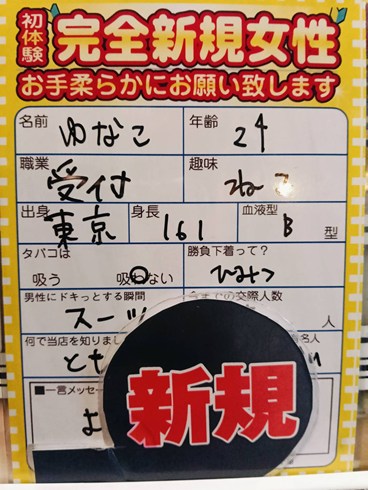 初体験
完全新規女性
お手柔らかにお願い致します
名前 ゆなこ 年齢 24
職業 受付 趣味
出身 東京 身長 161 血液型 B 型
タバコは 勝負下着って?
吸う 吸わない ひみつ
男性にドキっとする瞬間 今までの交際人数
スーツ 人
何で当店を知りまし 名人
■一言メッセー
新規